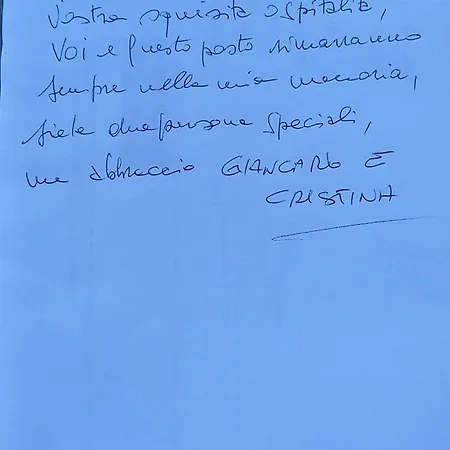 Vostra squisita ospitalità,
Voi e questo posto rimarranno
sempre nella mia memoria,
siete due persone speciali,
un abbraccio GIANCARLO E
CRISTINA